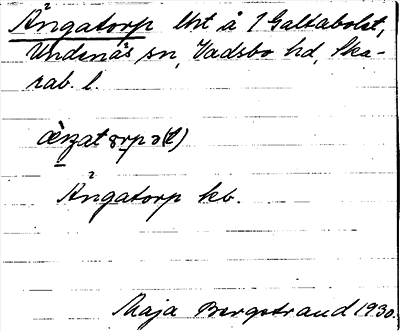 Ångatorp lht å 1 Galtabolet,
Undenäs sn, Vadsbo hd, Ska-
rab. l.
Ångatorp kb.
Maja Bergstrand 1930.